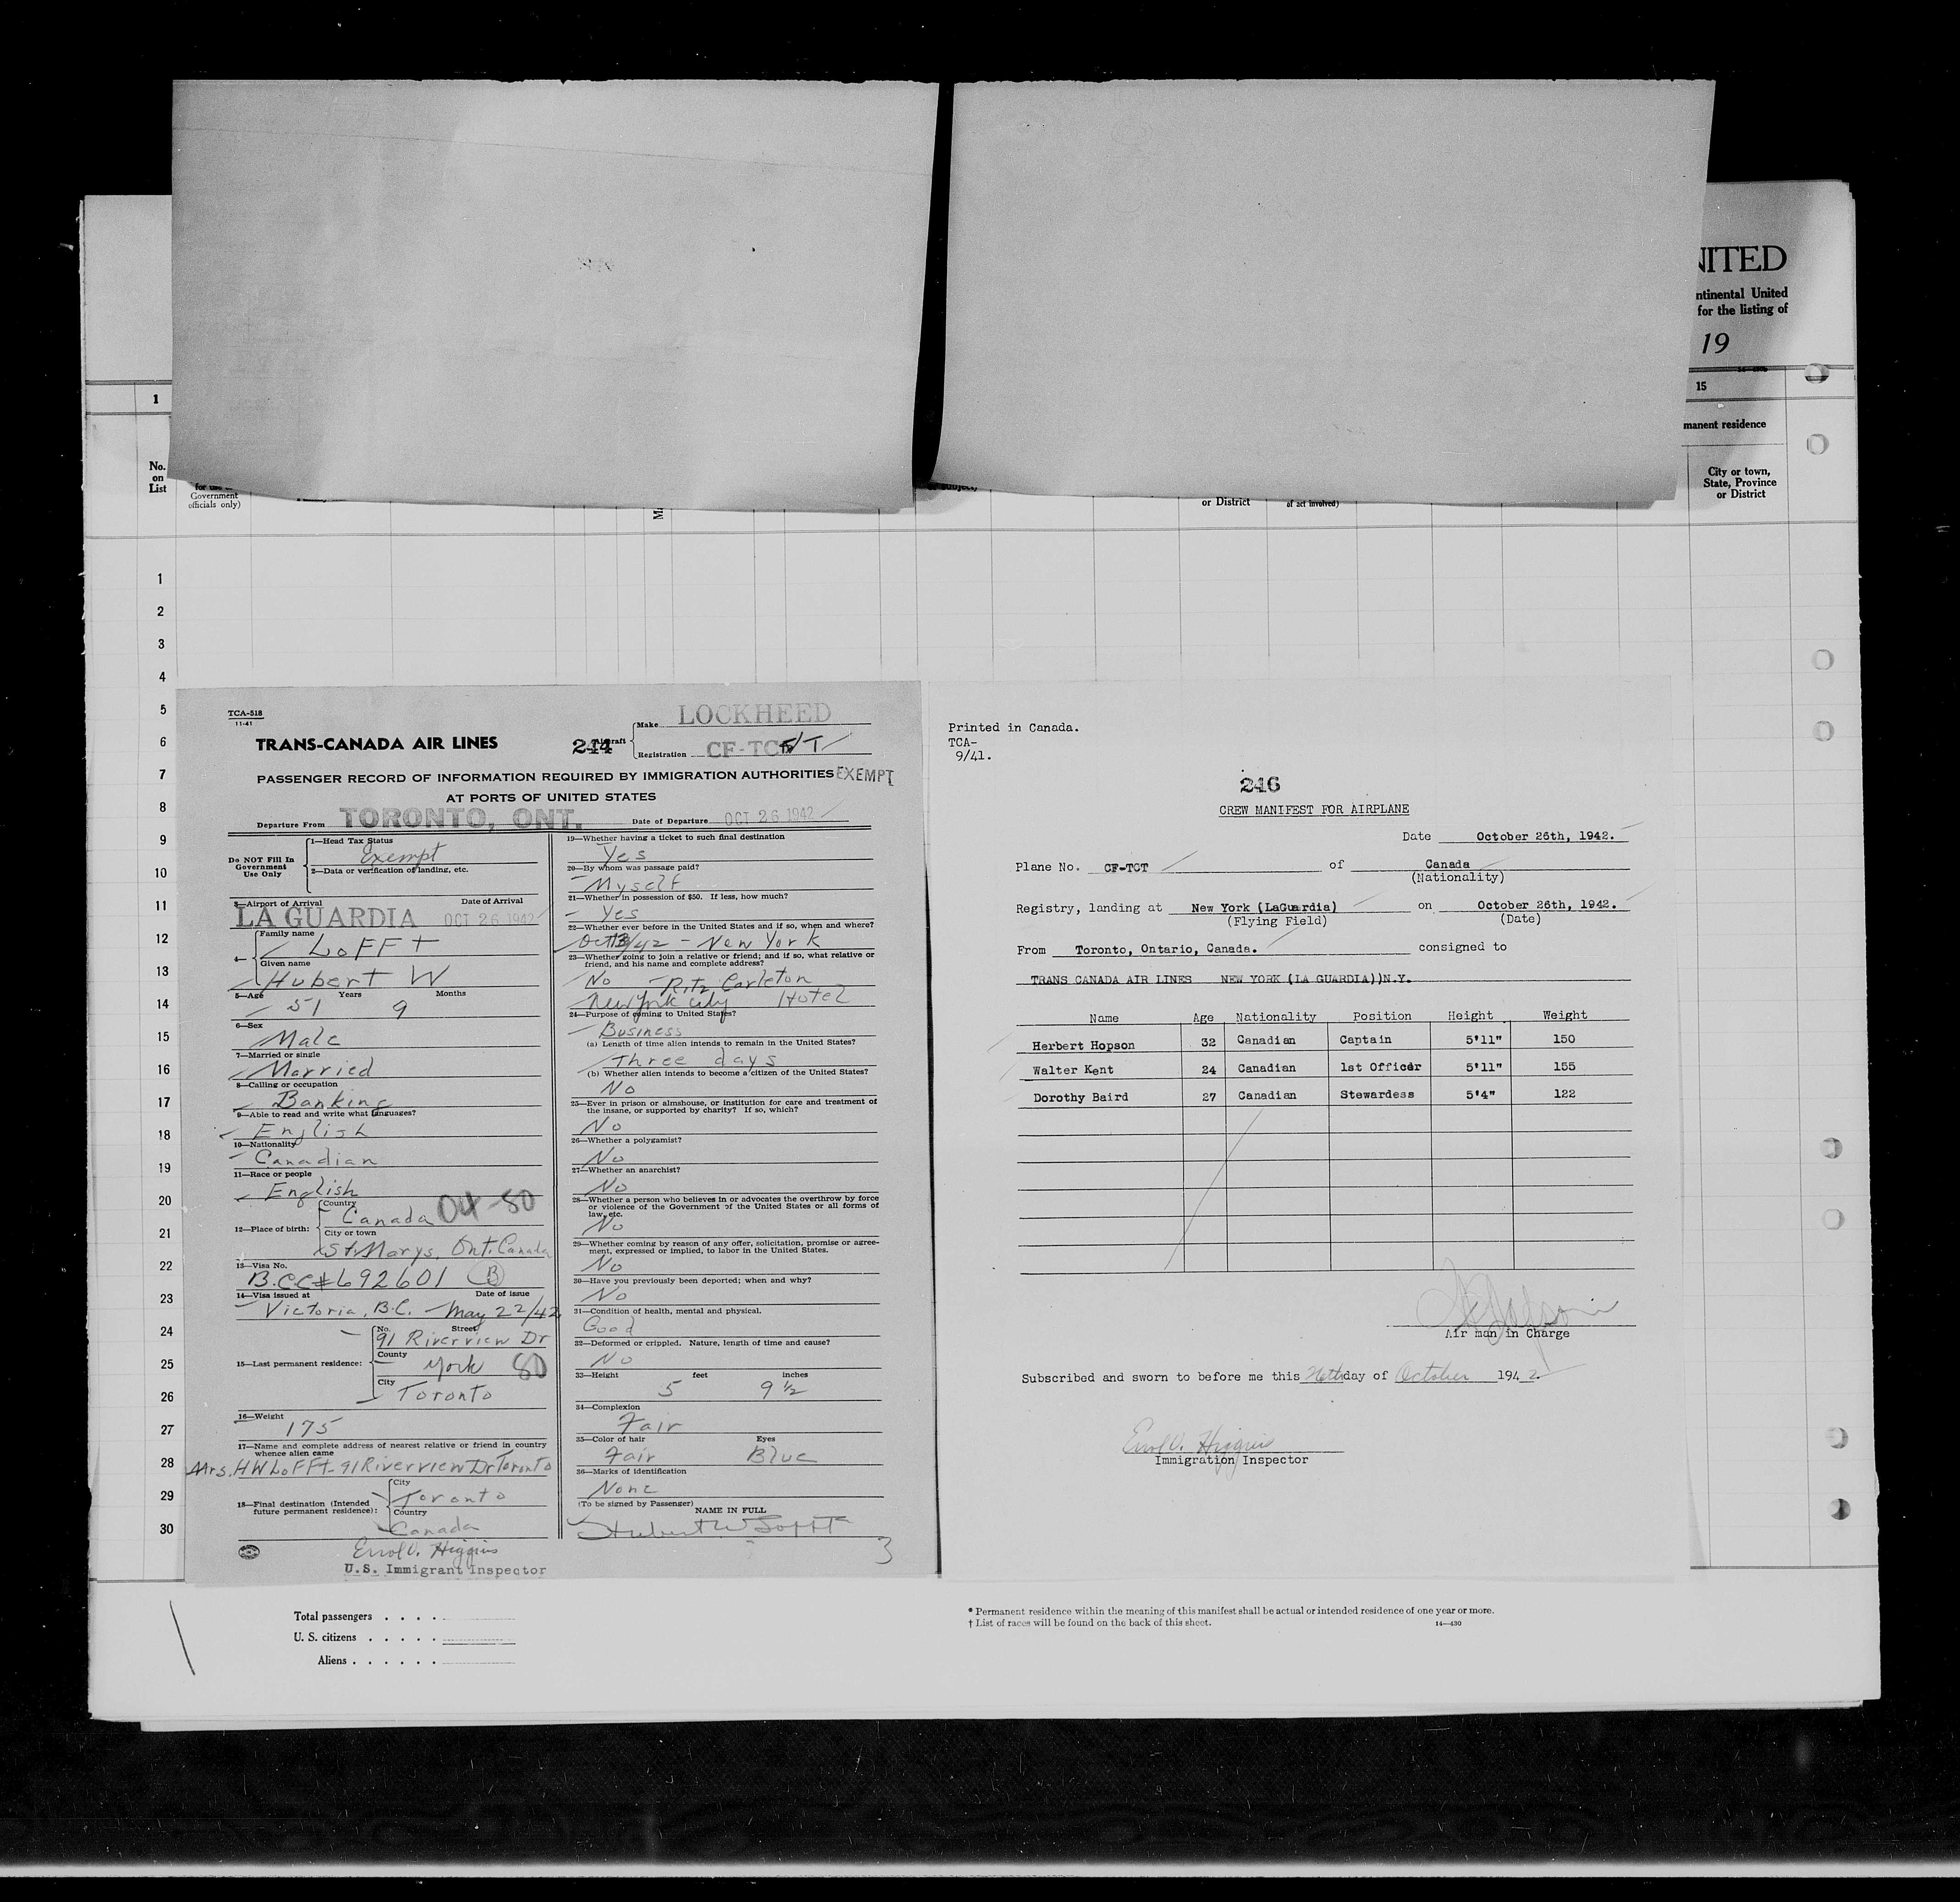 NITED
ntinental United
for the listing of
19
1
15
manent residence
No.
on
List
Government
officials only)
or District
of act involved)
City or town,
State, Province
or District
1
2
3
4
5
6
7
8
9
10
11
12
13
14
15
16
17
18
19
20
21
22
23
24
25
26
27
28
29
30
TCA-518
11-41
TRANS-CANADA AIR LINES
244
Aircraft
Make LOCKHEED
Registration CF-TCT
PASSENGER RECORD OF INFORMATION REQUIRED BY IMMIGRATION AUTHORITIES EXEMPT
AT PORTS OF UNITED STATES
Departure From TORONTO, ONT. Date of Departure OCT 26 1942
Do NOT Fill In
Government
Use Only
1—Head Tax Status
Exempt
2—Data or verification of landing, etc.
3—Airport of Arrival Date of Arrival
LA GUARDIA OCT 26 1942
4— Family name
LoFFt
Given name
Hubert W
5—Age Years Months
51 9
6—Sex
Male
7—Married or single
Married
8—Calling or occupation
Banking
9—Able to read and write what languages?
English
10—Nationality
Canadian
11—Race or people
English
12—Place of birth:
Country
Canada 04-80
City or town
St. Marys, Ont. Canada
13—Visa No.
B.C.C# 692601 B
14—Visa issued at Date of issue
Victoria, B.C. - May 22/42
15—Last permanent residence:
No. Street
91 Riverview Dr
County
York 80
City
Toronto
16—Weight
175
17—Name and complete address of nearest relative or friend in country
whence alien came
Mrs. HW LoFFt - 91 Riverview Dr Toronto
18—Final destination (Intended
future permanent residence):
City
Toronto
Country
Canada
Errol V. Higgins
U.S. Immigrant Inspector
19—Whether having a ticket to such final destination
Yes
20—By whom was passage paid?
Myself
21—Whether in possession of $50. If less, how much?
Yes
22—Whether ever before in the United States and if so, when and where?
Oct 13/42 - New York
23—Whether going to join a relative or friend; and if so, what relative or
friend, and his name and complete address?
No - Ritz Carleton
New York City Hotel
24—Purpose of coming to United States?
Business
(a) Length of time alien intends to remain in the United States?
Three days
(b) Whether alien intends to become a citizen of the United States?
No
25—Ever in prison or almshouse, or institution for care and treatment of
the insane, or supported by charity? If so, which?
No
26—Whether a polygamist?
No
27—Whether an anarchist?
No
28—Whether a person who believes in or advocates the overthrow by force
or violence of the Government of the United States or all forms of
law, etc.
No
29—Whether coming by reason of any offer, solicitation, promise or agree-
ment, expressed or implied, to labor in the United States.
No
30—Have you previously been deported; when and why?
No
31—Condition of health, mental and physical.
Good
32—Deformed or crippled. Nature, length of time and cause?
No
33—Height feet inches
5 9 ½
34—Complexion
Fair
35—Color of hair Eyes
Fair Blue
36—Marks of identification
None
(To be signed by Passenger)
NAME IN FULL
Hubert W Lofft
3
Printed in Canada.
TCA-
9/41.
246
CREW MANIFEST FOR AIRPLANE
Date October 26th, 1942.
Plane No. CF-TCT of Canada
(Nationality)
Registry, landing at New York (LaGuardia) on October 26th, 1942.
(Flying Field) (Date)
From Toronto, Ontario, Canada. consigned to
TRANS CANADA AIR LINES NEW YORK (LA GUARDIA))N.Y.
Name Age Nationality Position Height Weight
Herbert Hopson 32 Canadian Captain 5'11" 150
Walter Kent 24 Canadian 1st Officer 5'11" 155
Dorothy Baird 27 Canadian Stewardess 5'4" 122
Air man in Charge
Subscribed and sworn to before me this 26th day of October 1942.
Errol V. Higgins
Immigration Inspector
Total passengers . . . .
U. S. citizens . . . . .
Aliens . . . . . .
* Permanent residence within the meaning of this manifest shall be actual or intended residence of one year or more.
† List of races will be found on the back of this sheet. 14—430